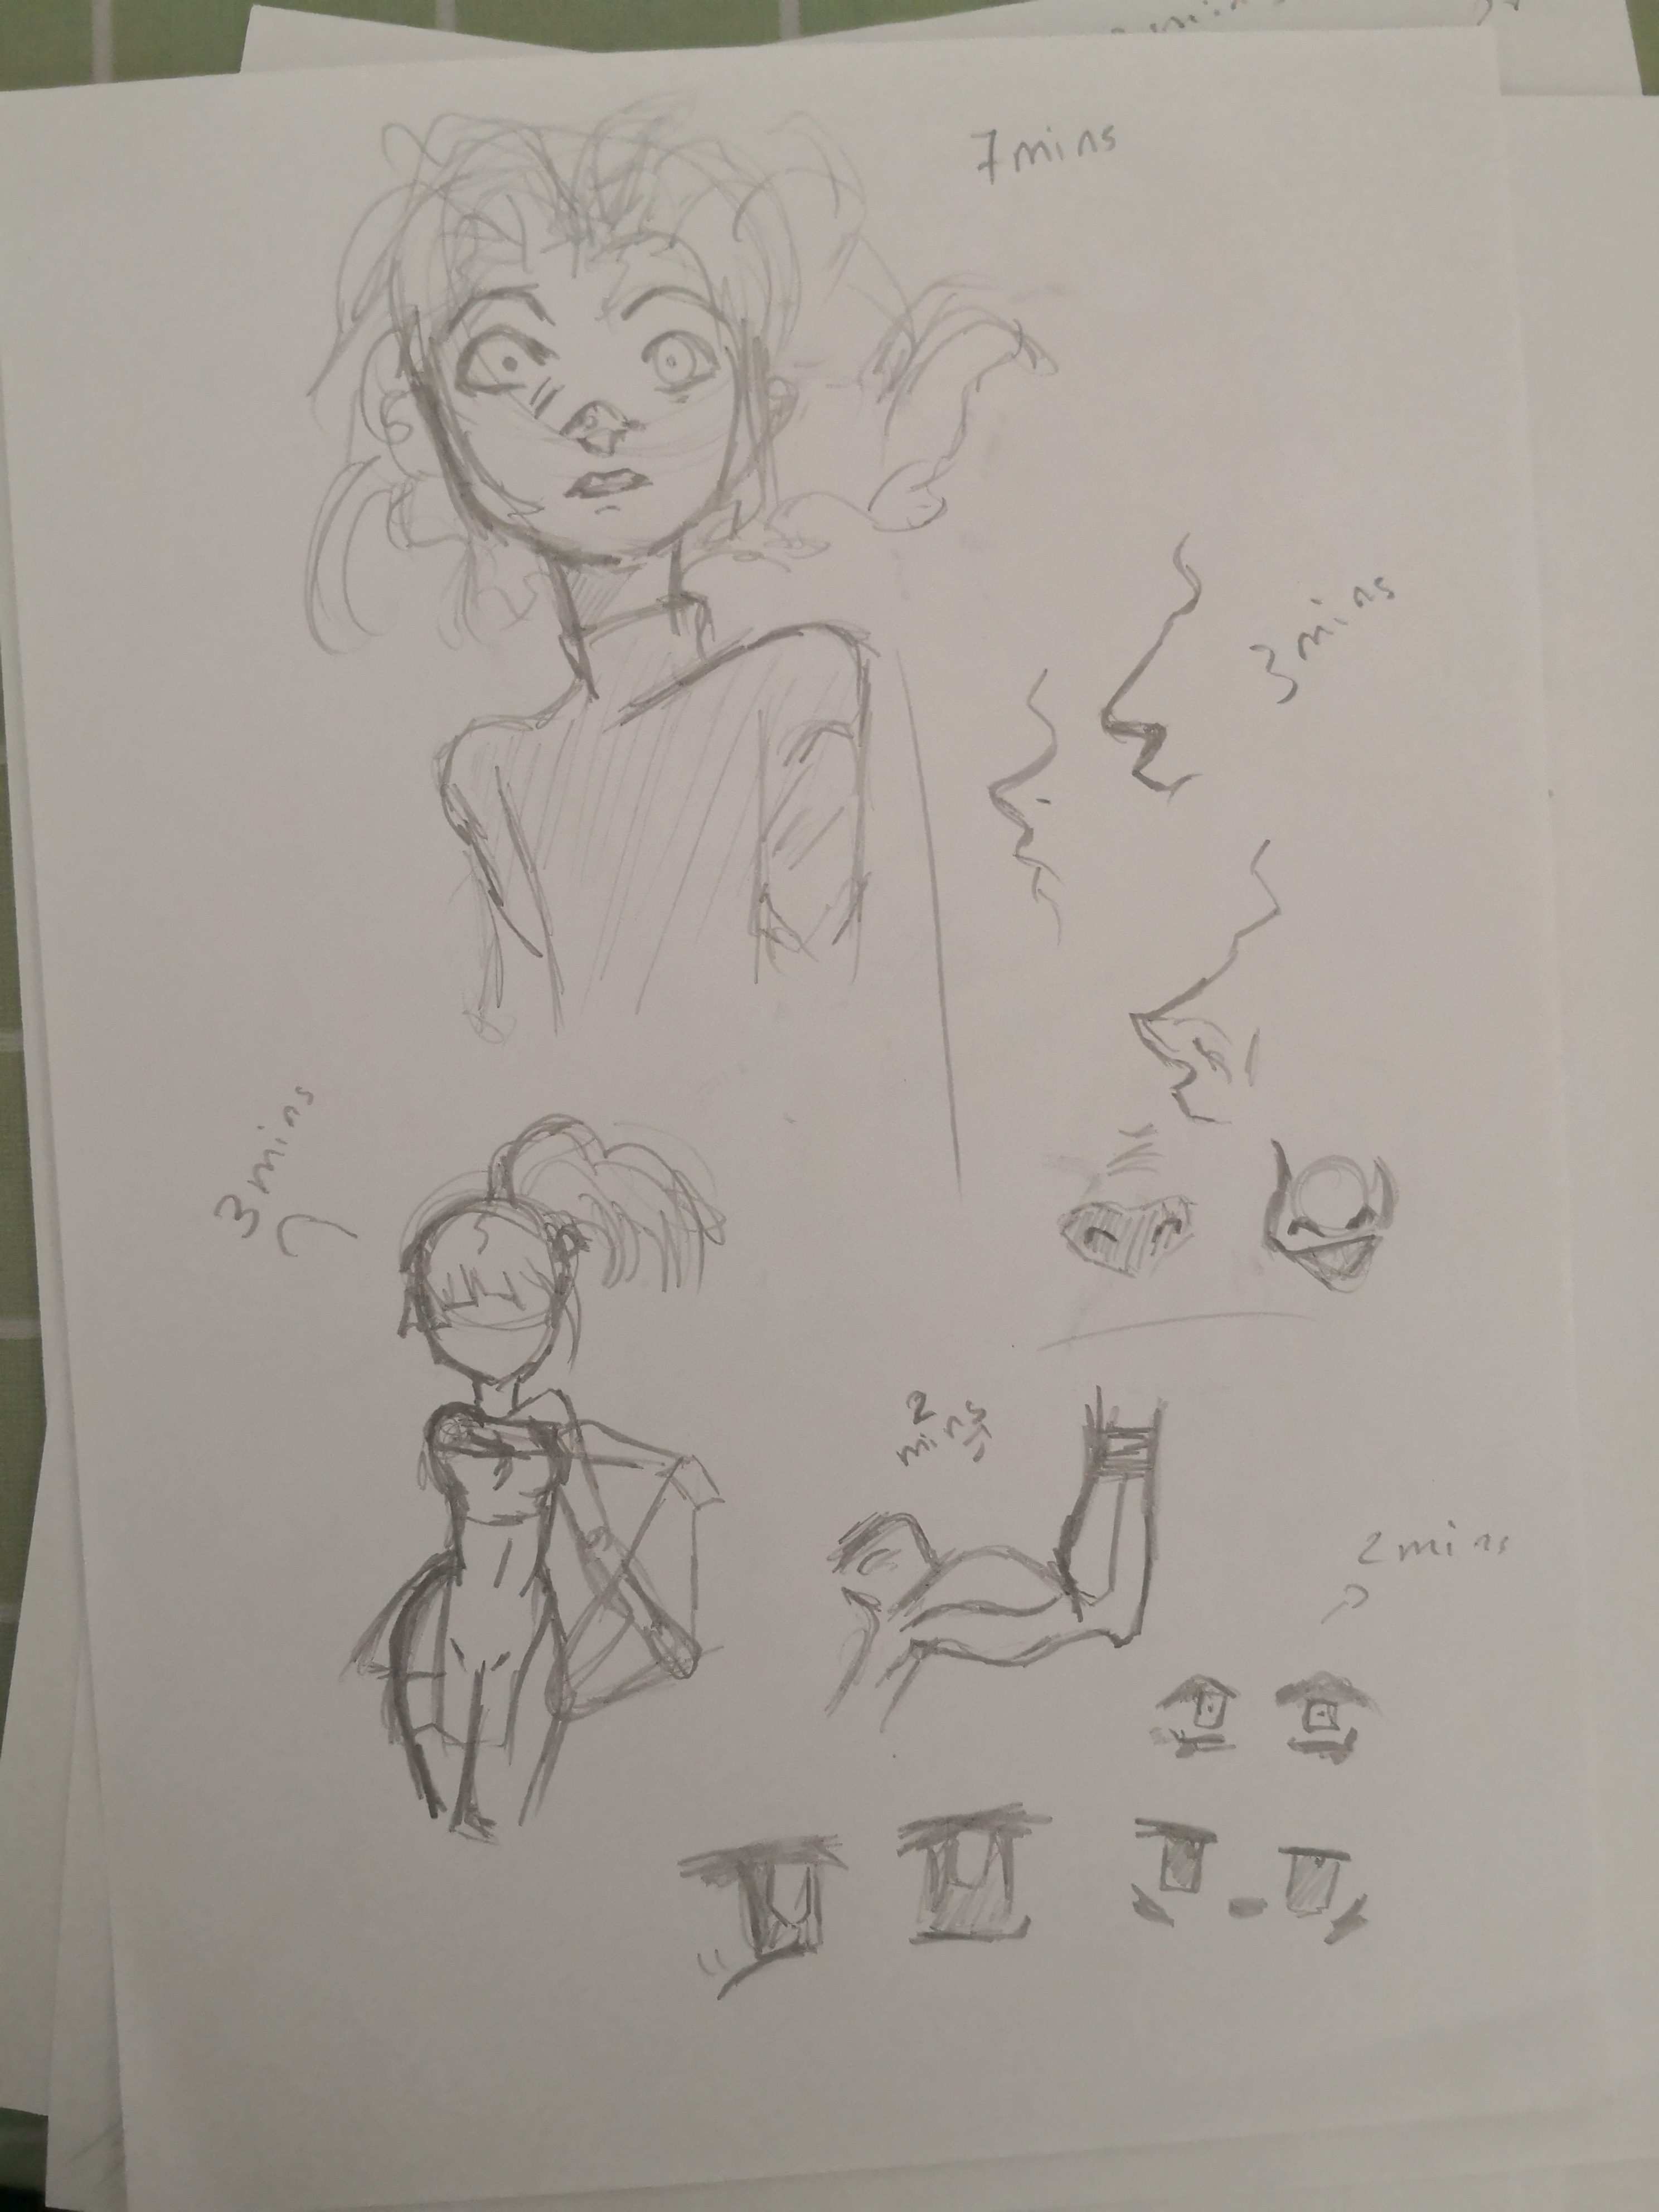 7 mins
3 mins
3 mins
2
mins
2 mins